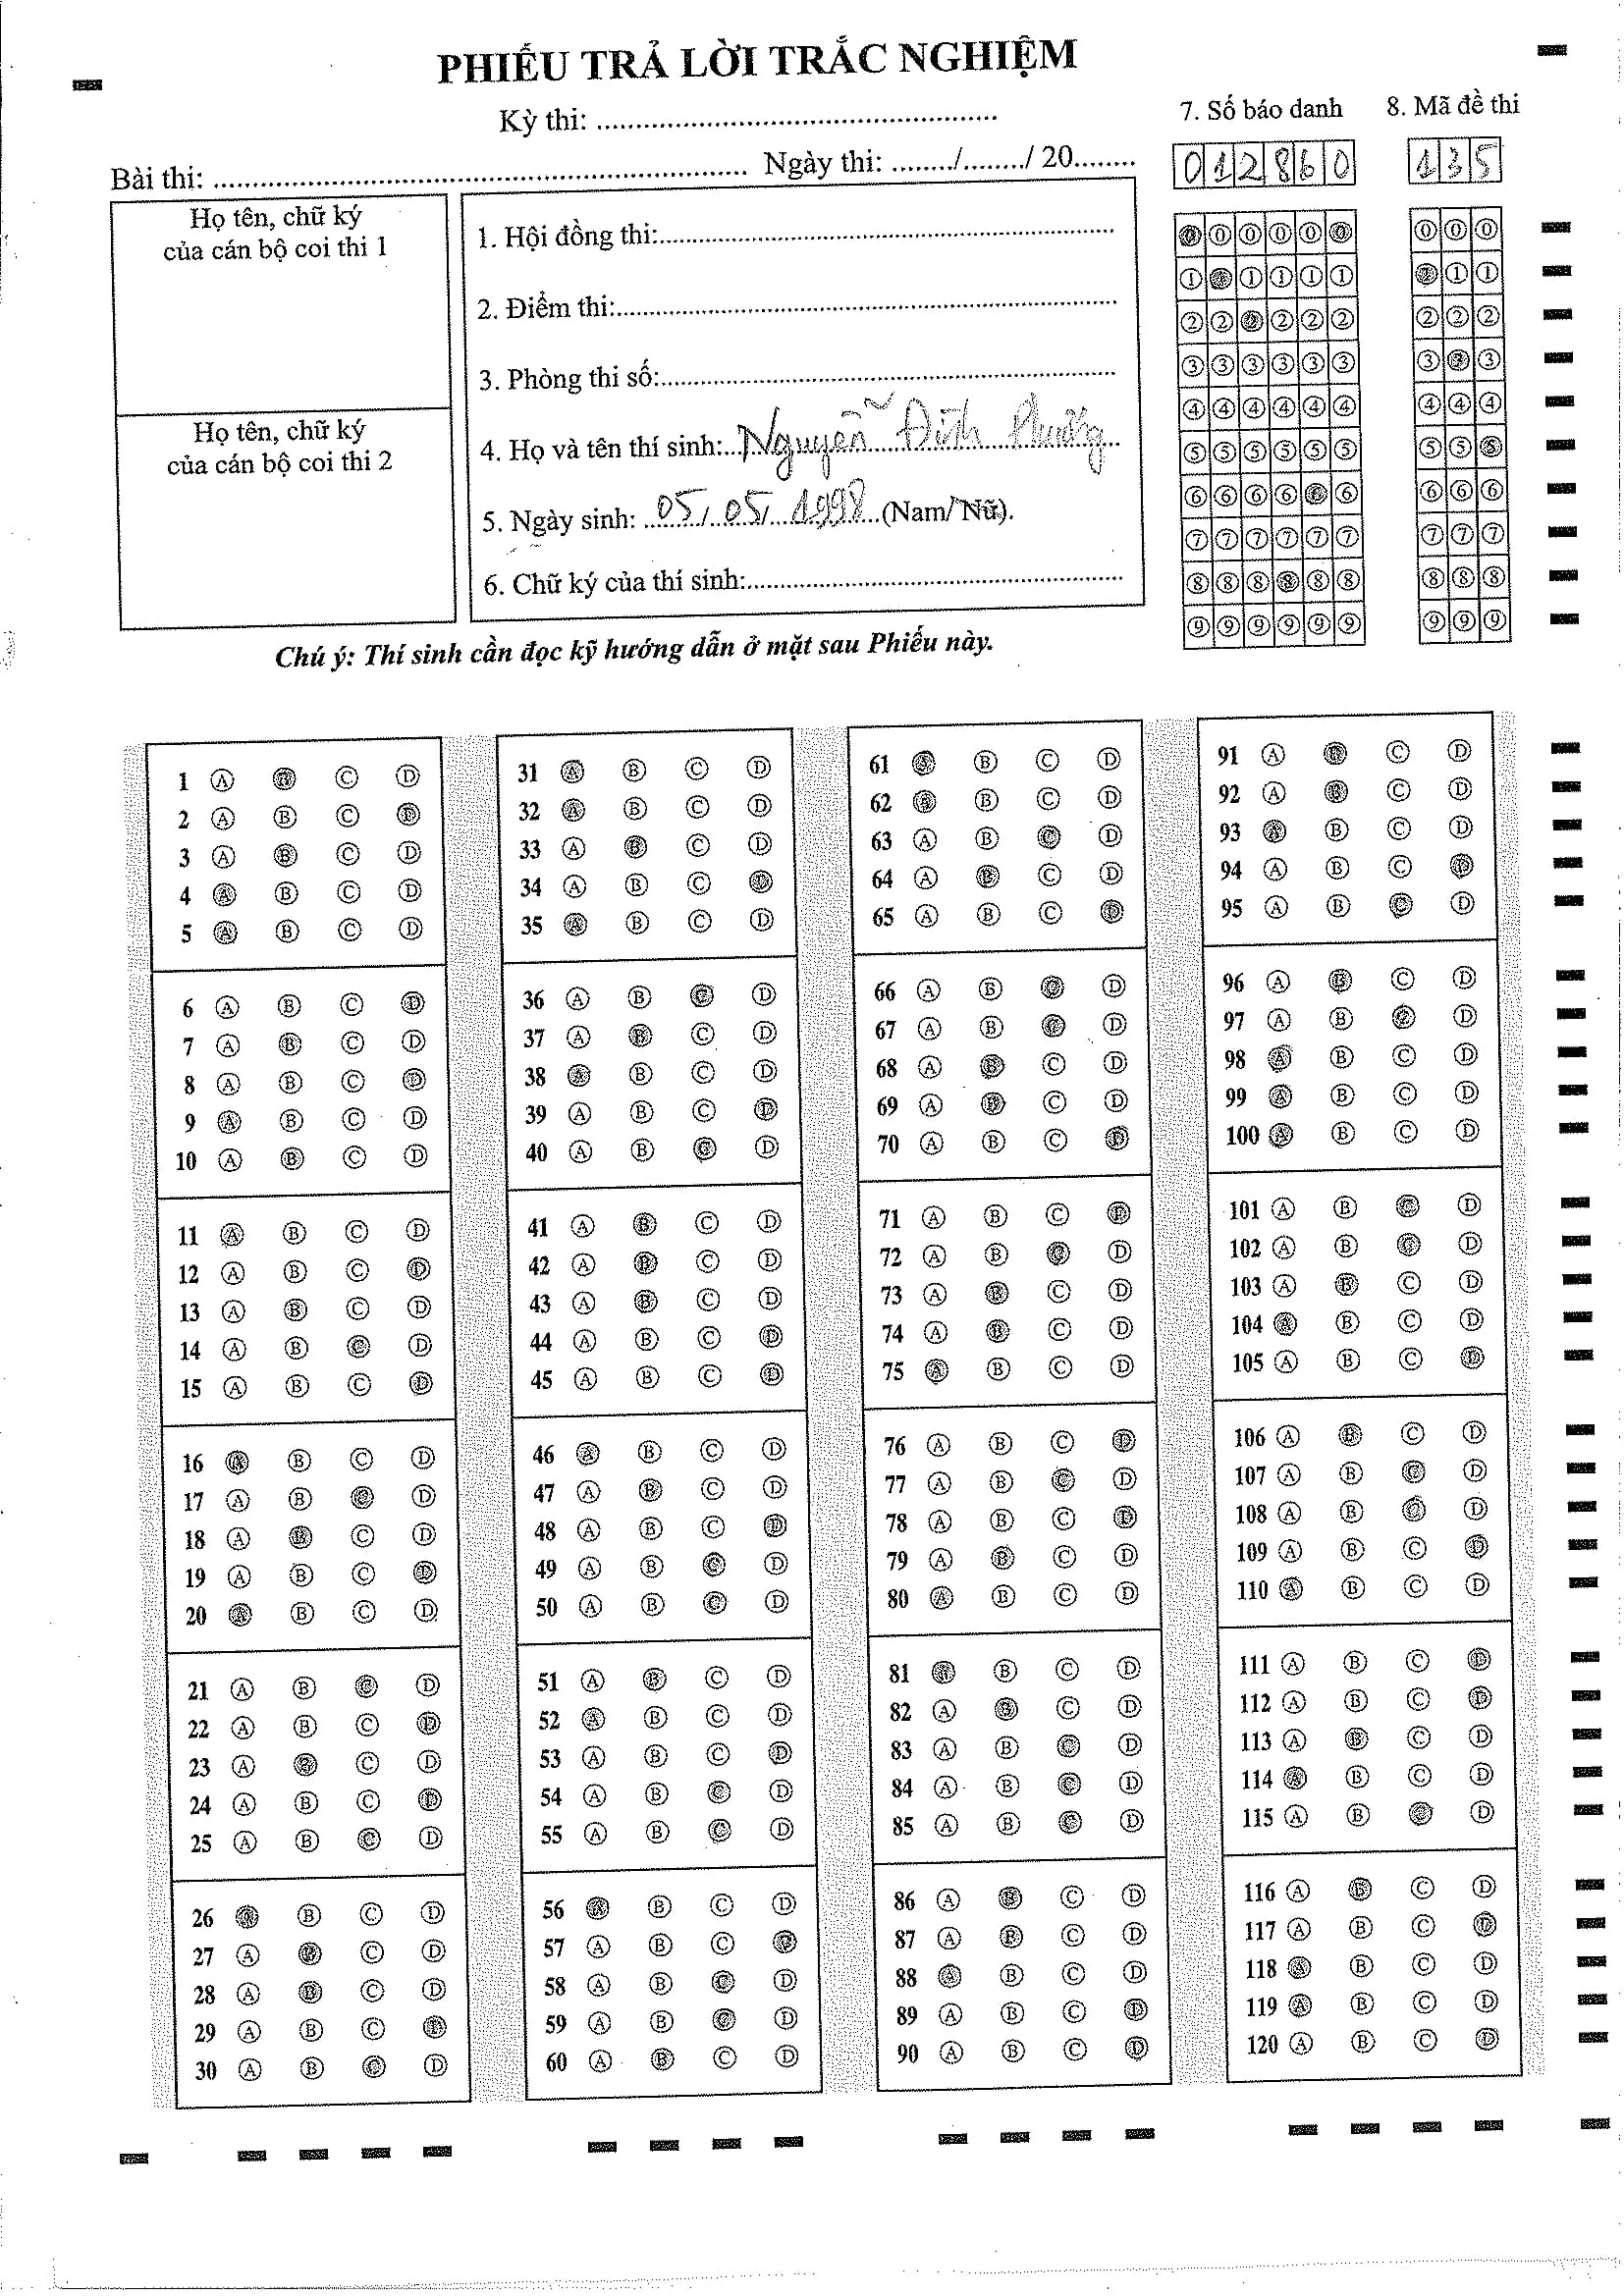 PHIẾU TRẢ LỜI TRẮC NGHIỆM
Kỳ thi: ....................................................
Bài thi: ..................................................................... Ngày thi: ......../......../ 20........
Họ tên, chữ ký
của cán bộ coi thi 1
Họ tên, chữ ký
của cán bộ coi thi 2
1. Hội đồng thi:............................................................
2. Điểm thi:.................................................................
3. Phòng thi số:...........................................................
4. Họ và tên thí sinh: Nguyễn Đình Phương
5. Ngày sinh: 05/05/1998 (Nam/ Nữ).
6. Chữ ký của thí sinh:.................................................
Chú ý: Thí sinh cần đọc kỹ hướng dẫn ở mặt sau Phiếu này.
7. Số báo danh
012860
0 0 0 0 0 0
1 1 1 1 1 1
2 2 2 2 2 2
3 3 3 3 3 3
4 4 4 4 4 4
5 5 5 5 5 5
6 6 6 6 6 6
7 7 7 7 7 7
8 8 8 8 8 8
9 9 9 9 9 9
8. Mã đề thi
135
0 0 0
1 1 1
2 2 2
3 3 3
4 4 4
5 5 5
6 6 6
7 7 7
8 8 8
9 9 9
1 A B C D
2 A B C D
3 A B C D
4 A B C D
5 A B C D
6 A B C D
7 A B C D
8 A B C D
9 A B C D
10 A B C D
11 A B C D
12 A B C D
13 A B C D
14 A B C D
15 A B C D
16 A B C D
17 A B C D
18 A B C D
19 A B C D
20 A B C D
21 A B C D
22 A B C D
23 A B C D
24 A B C D
25 A B C D
26 A B C D
27 A B C D
28 A B C D
29 A B C D
30 A B C D
31 A B C D
32 A B C D
33 A B C D
34 A B C D
35 A B C D
36 A B C D
37 A B C D
38 A B C D
39 A B C D
40 A B C D
41 A B C D
42 A B C D
43 A B C D
44 A B C D
45 A B C D
46 A B C D
47 A B C D
48 A B C D
49 A B C D
50 A B C D
51 A B C D
52 A B C D
53 A B C D
54 A B C D
55 A B C D
56 A B C D
57 A B C D
58 A B C D
59 A B C D
60 A B C D
61 A B C D
62 A B C D
63 A B C D
64 A B C D
65 A B C D
66 A B C D
67 A B C D
68 A B C D
69 A B C D
70 A B C D
71 A B C D
72 A B C D
73 A B C D
74 A B C D
75 A B C D
76 A B C D
77 A B C D
78 A B C D
79 A B C D
80 A B C D
81 A B C D
82 A B C D
83 A B C D
84 A B C D
85 A B C D
86 A B C D
87 A B C D
88 A B C D
89 A B C D
90 A B C D
91 A B C D
92 A B C D
93 A B C D
94 A B C D
95 A B C D
96 A B C D
97 A B C D
98 A B C D
99 A B C D
100 A B C D
101 A B C D
102 A B C D
103 A B C D
104 A B C D
105 A B C D
106 A B C D
107 A B C D
108 A B C D
109 A B C D
110 A B C D
111 A B C D
112 A B C D
113 A B C D
114 A B C D
115 A B C D
116 A B C D
117 A B C D
118 A B C D
119 A B C D
120 A B C D